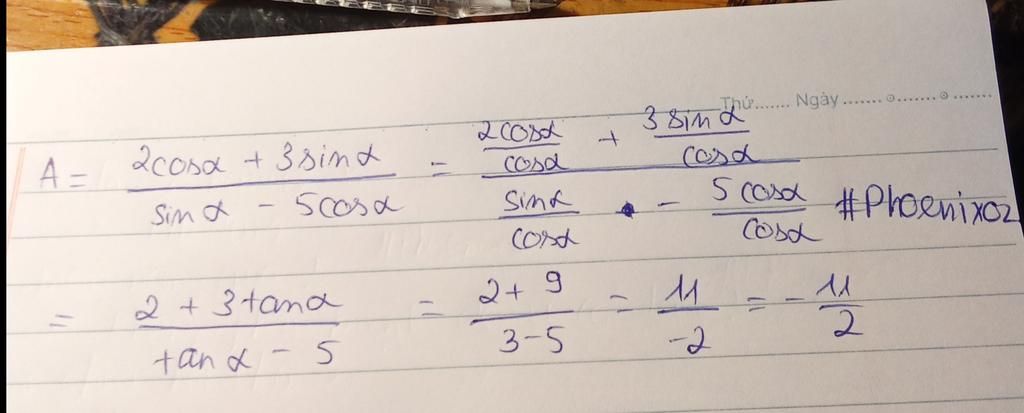 Thứ....... Ngày ....... o....... o .......
A = (2cosα + 3sinα)/(sinα - 5cosα) = (2cosα/cosα + 3sinα/cosα)/(sinα/cosα - 5cosα/cosα) #Phoenixoz
= (2 + 3tanα)/(tanα - 5) = (2+9)/(3-5) = 11/-2 = -11/2